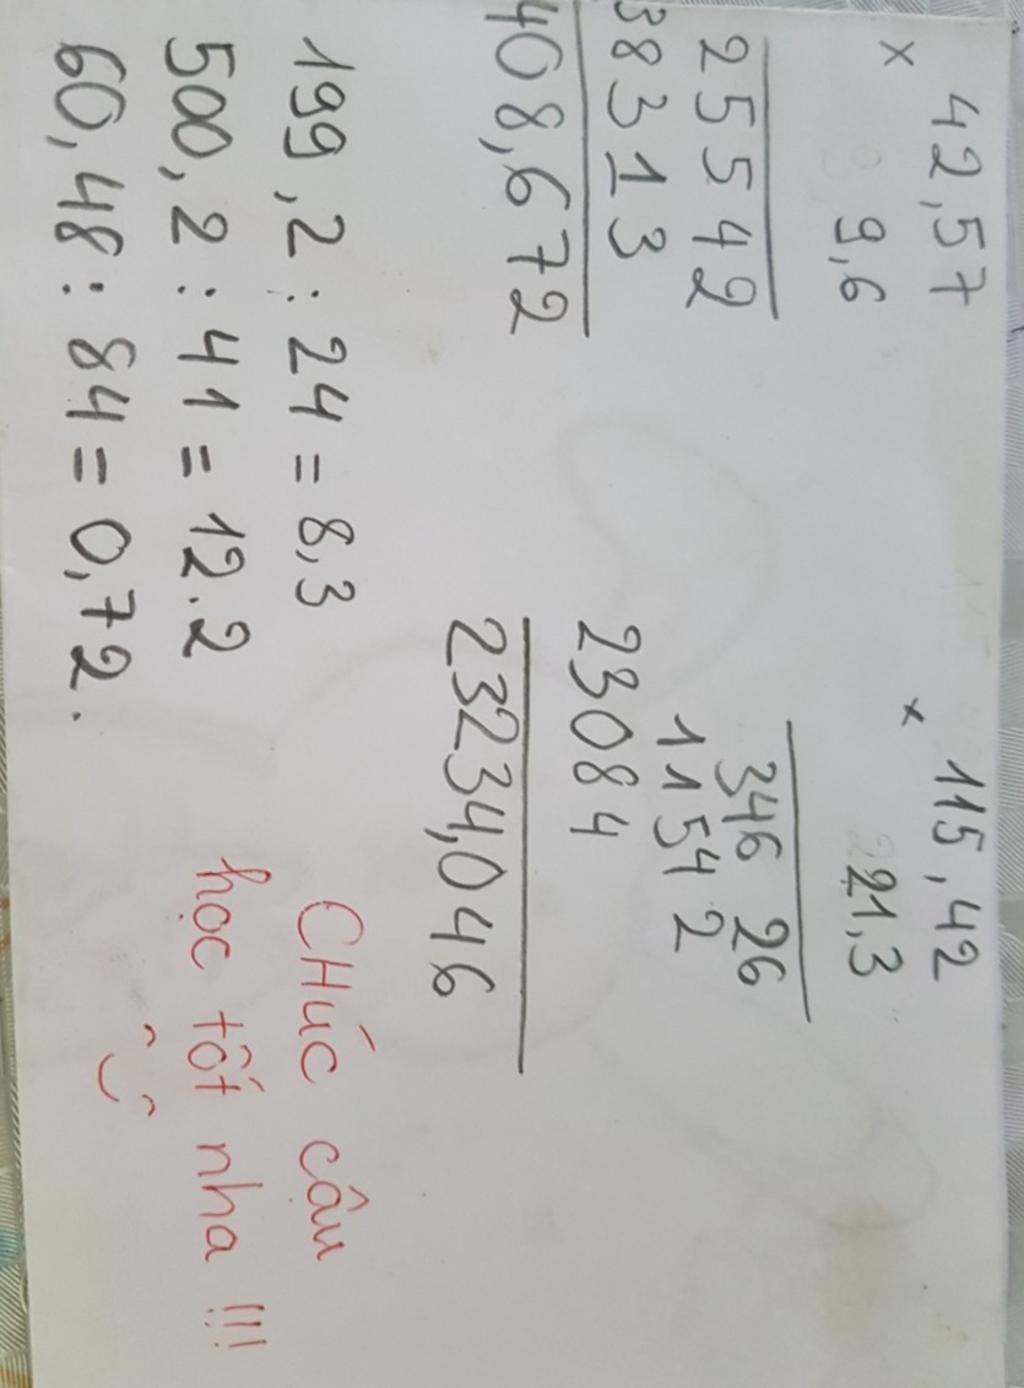 × 42,57
9,6
25542
38313
408,672
× 115,42
221,3
34626
11542
23084
23234,046
199,2 : 24 = 8,3
500,2 : 41 = 12.2
60,48 : 84 = 0,72.
CHÚC cậu
học tốt nha !!!